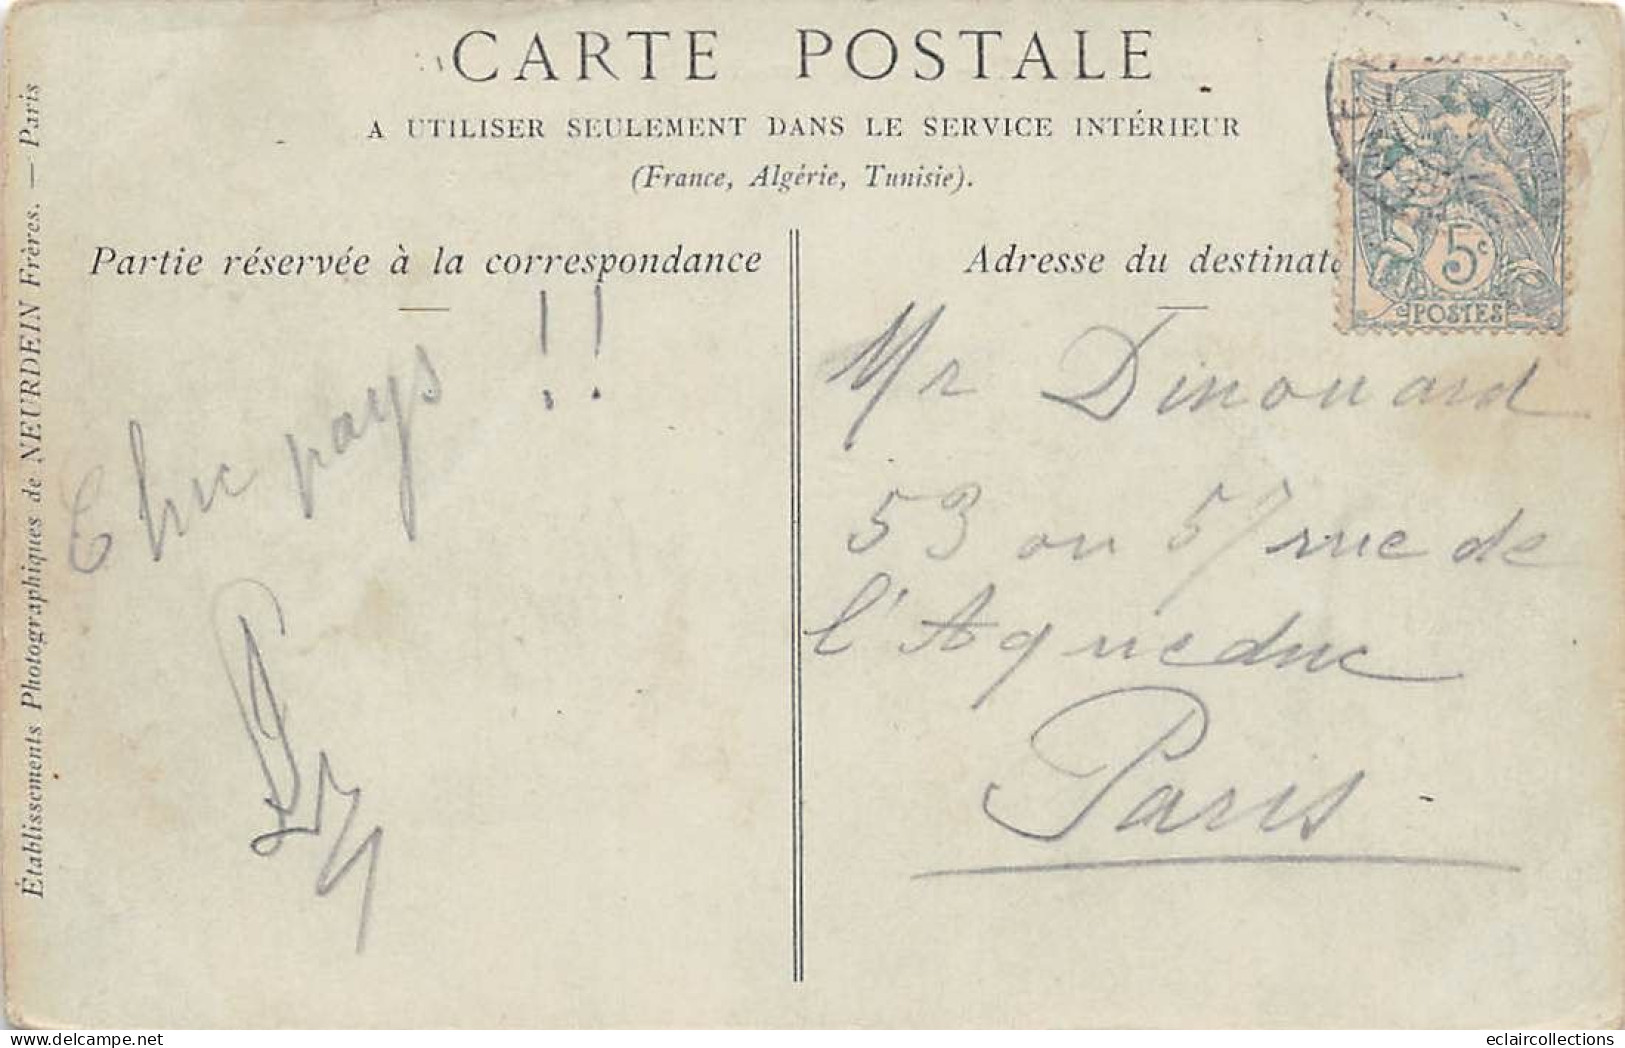 CARTE POSTALE
A UTILISER SEULEMENT DANS LE SERVICE INTÉRIEUR
(France, Algérie, Tunisie).
Établissements Photographiques de NEURDEIN Frères. — Paris
Partie réservée à la correspondance
Chic pays !!
Adresse du destinat
5c
POSTES
Mr Dinouard
53 ou 57 rue de
l'Aqueduc
Paris
delcampe.net
eclaircollections